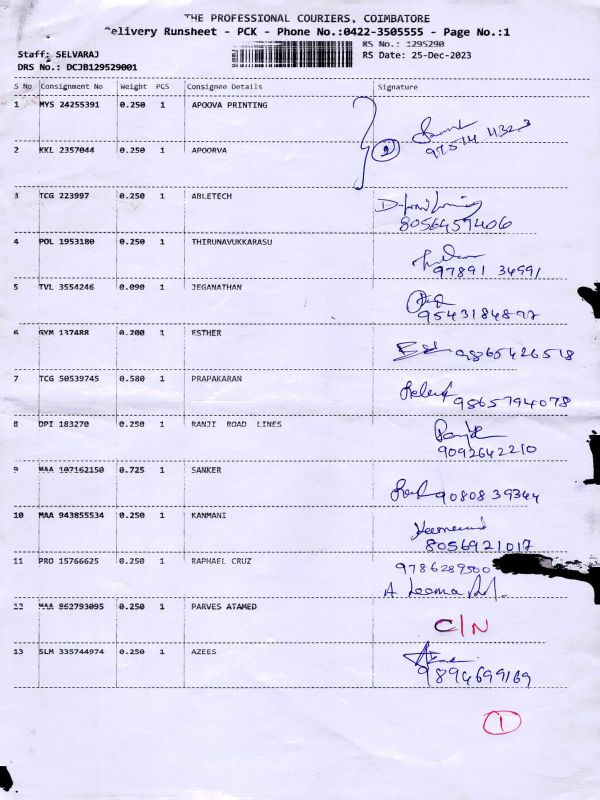 THE PROFESSIONAL COURIERS, COIMBATORE
Delivery Runsheet - PCK - Phone No.:0422-3505555 - Page No.:1
Staff: SELVARAJ RS No.: 1295290
DRS No.: DCJB129529001 RS Date: 25-Dec-2023
S No Consignment No Weight PCS Consignee Details Signature
1 MYS 24255391 0.250 1 APOOVA PRINTING
2 KKL 2357044 0.250 1 APOORVA 2
97514 4323
3 TCG 223997 0.250 1 ABLETECH
8056459406
4 POL 1953180 0.250 1 THIRUNAVUKKARASU
97891 34991
5 TVL 3554246 0.090 1 JEGANATHAN
9543184877
6 GYM 137488 0.200 1 ESTHER
9865426518
7 TCG 50539745 0.580 1 PRAPAKARAN
9865794078
8 DPI 183270 0.250 1 RANJI ROAD LINES
9092642210
9 MAA 107162150 0.725 1 SANKER
9080839344
10 MAA 943855534 0.250 1 KANMANI
8056921017
11 PRO 15766625 0.250 1 RAPHAEL CRUZ
9786289500
A Leema
12 MAA 862793095 0.250 1 PARVES ATAMED
C/N
13 SLM 335744974 0.250 1 AZEES
9894699169
1